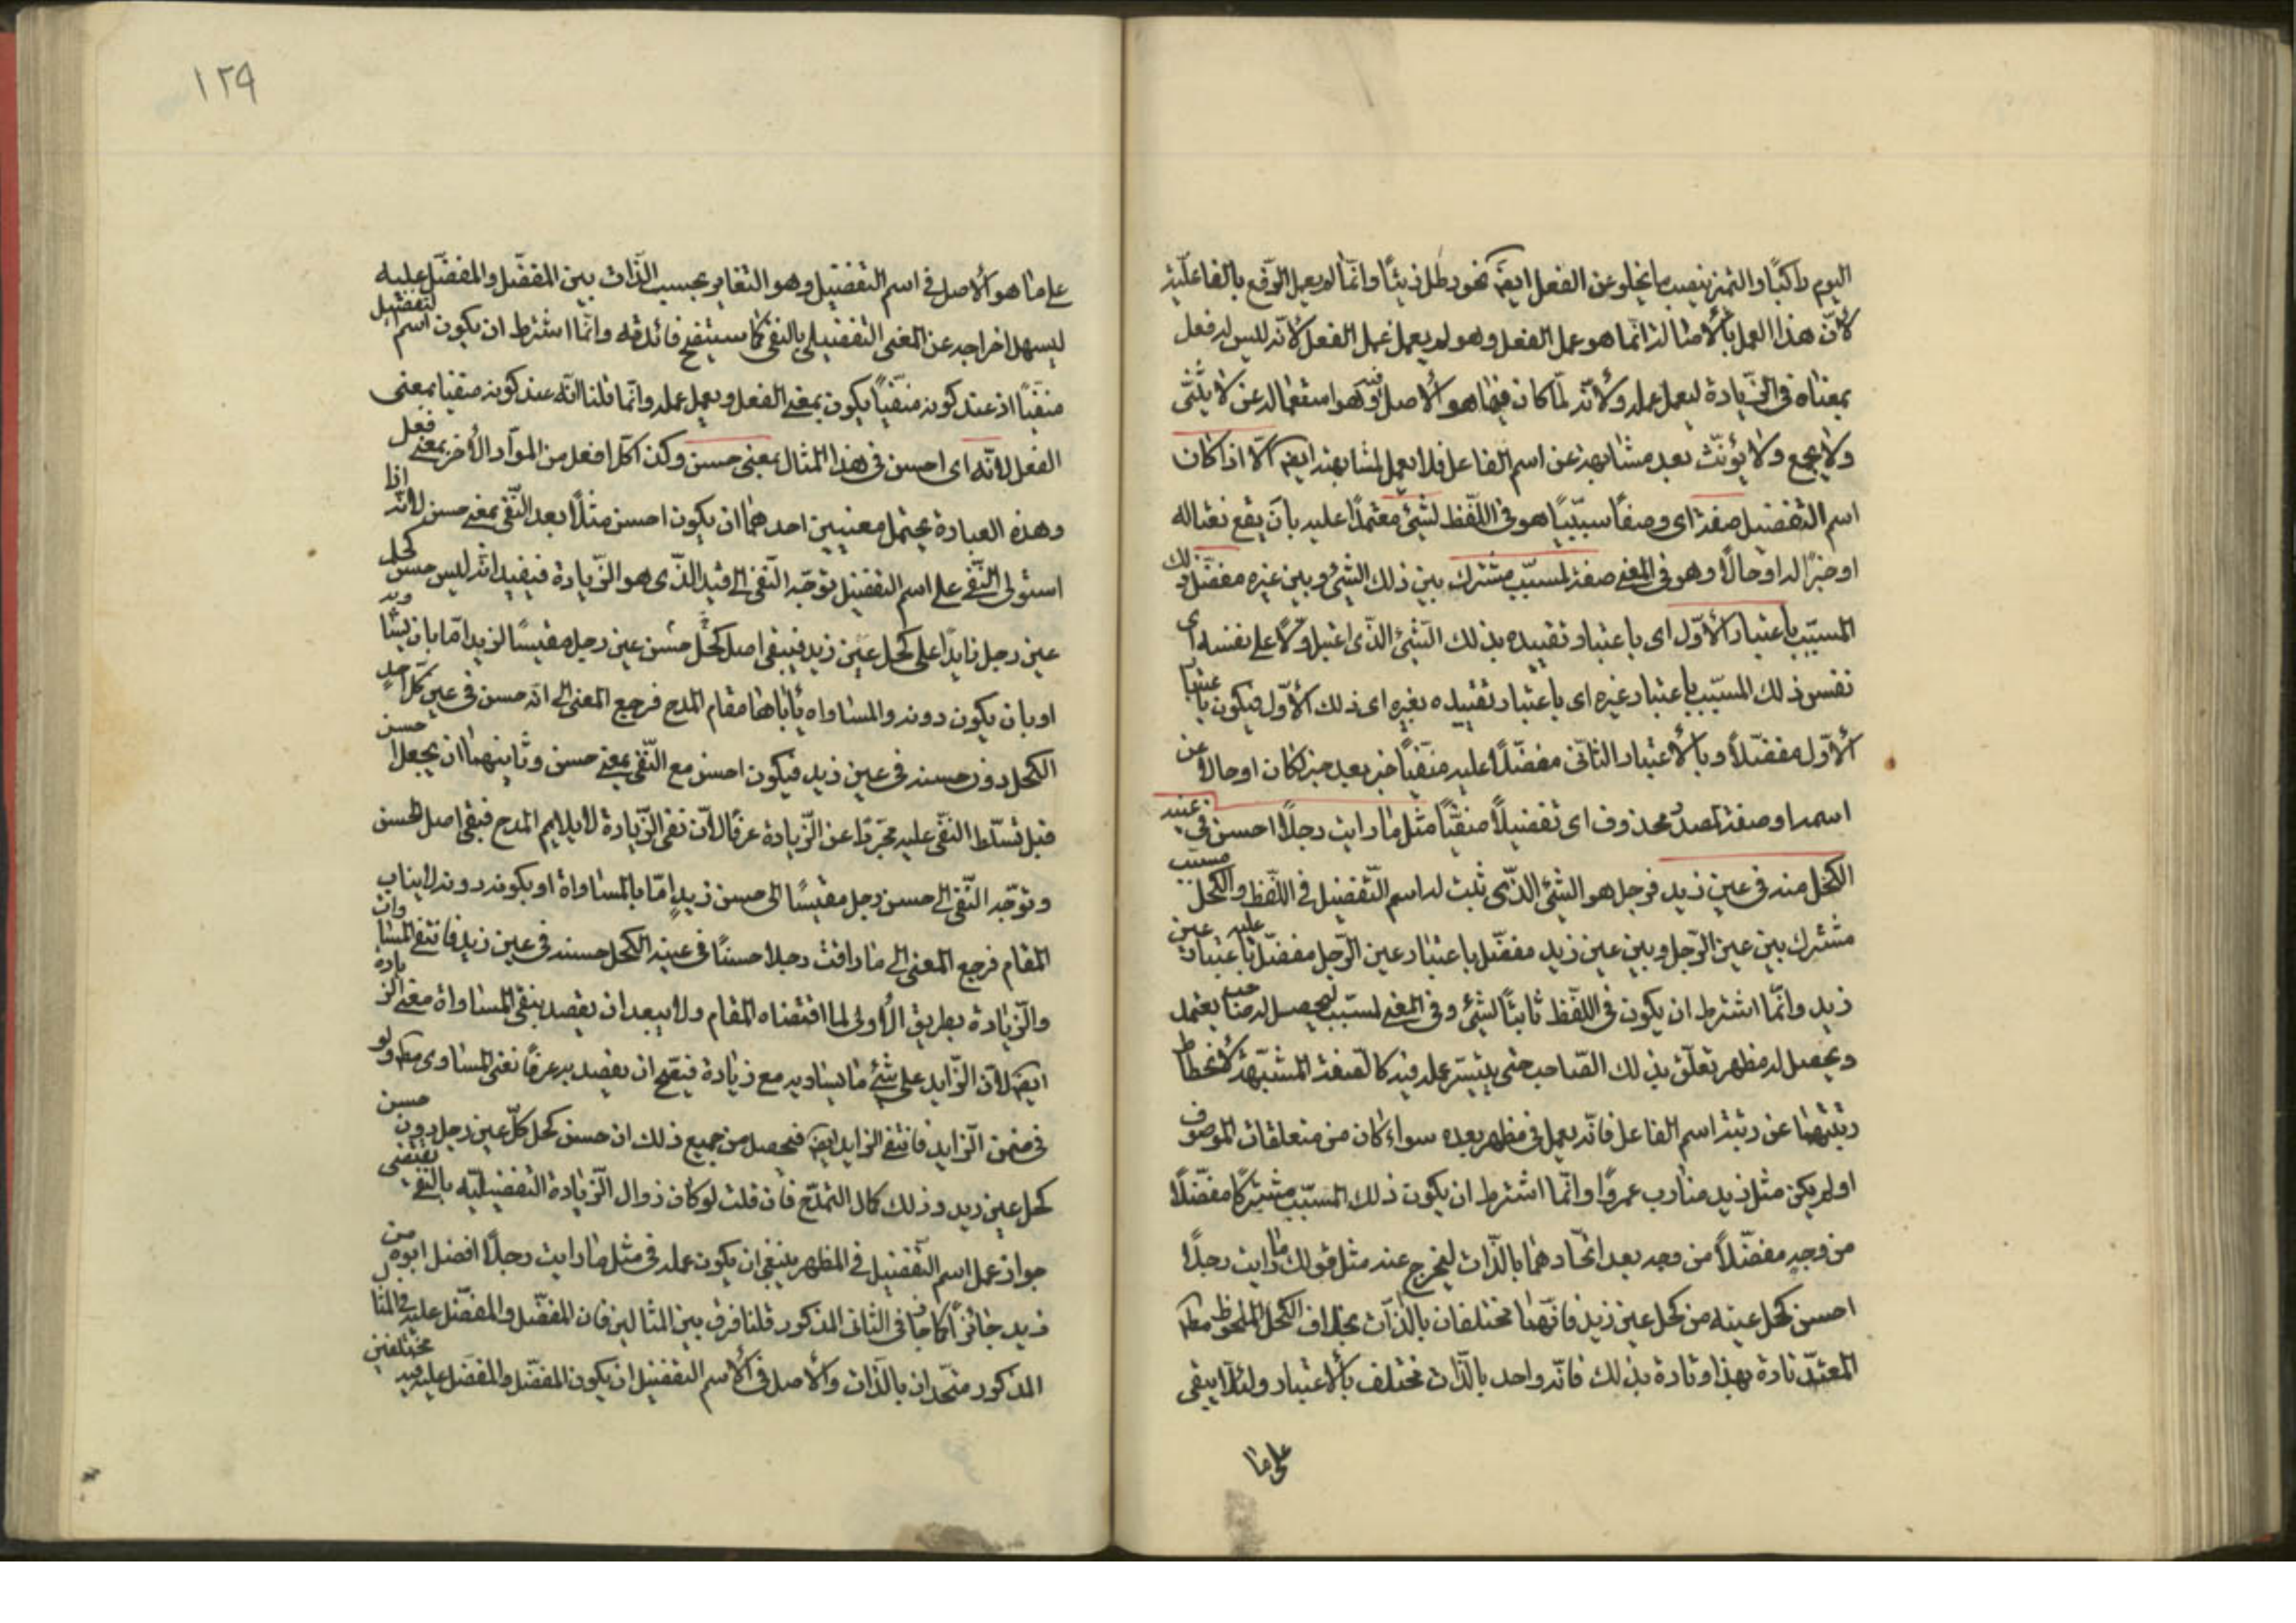 اليوم راكبًا والتمييز ينصبه ما يخلو عن الفعل ايضًا نحو رطل زيتًا وانّما لم يعمل الرّفع بالفاعليّة
لانّ هذا العمل بالاصالة انّما هو عمل الفعل وهو لم يعمل عمل الفعل لانّه ليس له فعل
بمعناه فى الزّيادة ليعمل عمله ولانّه لمّا كان فيما هو الاصل فيه وهو استعماله بمن لا يثنّى
ولا يجمع ولا يؤنّث بعد مشابهته عن اسم الفاعل فلا يعمل لمشابهته ايضًا الّا اذا كان
اسم التفضيل صفة اى وصفًا سببيًّا هو فى اللّفظ لشئ معتمدًا عليه بان يقع نعتا له
او خبرًا له او حالًا وهو فى المعنى صفة لمسبّب مشترك بين ذلك الشئ وبين غيره مفضّل ذلك
المسبّب باعتبار الاوّل اى باعتبار تقييده بذلك الشّئ الذّى اعتبر اوّلًا على نفسه اى
نفس ذلك المسبّب باعتبار غيره اى باعتبار تقييده بغيره اى ذلك الاوّل فيكون باعتبار
الاوّل مفضّلًا وبالاعتبار الثانى مفضّلًا عليه منفيًّا خبر بعد خبر لكان او حال عن
اسمه او صفة لمصدر محذوف اى تفضيلًا منفيًّا مثل ما رايت رجلًا احسن فى عينه
الكحل منه فى عين زيد فرجل هو الشئ الذّى ثبت له اسم التّفضيل فى اللّفظ والكحل مسبّب
مشترك بين عين الرّجل وبين عين زيد مفضّل باعتبار عين الرّجل مفضّل عليه باعتبار عين
زيد وانّما اشترط ان يكون فى اللّفظ ثابتًا لشئ وفى المعنى لمسبّب ليحصل له صاحب يعتمد
ويحصل له مظهر تعلّق بذلك الصّاحب حتى يتيسّر عمله فيه كالصفة المشبّهة لانحطاط
رتبتهما عن رتبة اسم الفاعل فانّه يعمل فى مظهر بعده سواء كان من متعلقات الموصوف
او لم يكن مثل زيد ضارب عمروًا وانّما اشترط ان يكون ذلك المسبّب مشتركًا مفضّلًا
من وجه مفضّلًا من وجه بعد اتّحادهما بالذّات ليخرج عنه مثل قولك ما رايت رجلًا
احسن كحل عينه من كحل عين زيد فانّهما مختلفان بالذّات بخلاف الكحل الملحوظ مطلقًا
المعتدّ تارة بهذا وتارة بذلك فانّه واحد بالذّات مختلف بالاعتبار ولئلّا يبقى
على ما
١٢٩
على ما هو الاصل فى اسم التفضيل وهو التغاير بحسب الذّات بين المفضّل والمفضّل عليه
ليسهل اخراجه عن المعنى التفضيلى بالنفى كما ستتضح فائدته وانّما اشترط ان يكون اسم التفضيل
منفيًا اذ عند كونه منفيًّا يكون بمعنى الفعل ويعمل عمله وانّما قلنا انّه عند كونه منفيا بمعنى
الفعل لانّه اى احسن فى هذا المثال بمعنى حسن وكذا كلّ افعل من الموادّ الاخر بمعنى فعل
وهذه العبارة يحتمل معنيين احدهما ان يكون احسن مثلًا بعد النّفى بمعنى حسن لانّه اذا
استولى النّفى على اسم التفضيل توجّه النّفى الى قيده الذّى هو الزّيادة فيفيد انّه ليس حسن كحل
عين رجل زايدًا على كحل عين زيد فيبقى اصل كحل حسن عين رجل مقيسًا لزيد امّا بان يساويه
او بان يكون دونه والمساواة يأباها مقام المدح فرجع المعنى الى انّه حسن فى عين كلّ احد
الكحل دون حسنه فى عين زيد فيكون احسن مع النّفى بمعنى حسن وثانيهما ان يجعل احسن
قبل تسلّط النّفى عليه مجرّدًا عن الزّيادة عرفًا لانّ نفى الزّيادة لا يلايم المدح فبقى اصل الحسن
وتوجّه النّفى الى حسن رجل مقيسًا الى حسن زيدٍ امّا بالمساواة او بكونه دونه لا يناسب
المقام فرجع المعنى الى ما رايت رجلا حسنًا فى عينه الكحل حسنه فى عين زيد فانتفى المساواة
والزّيادة بطريق الاولى لما اقتضاه المقام ولا يبعد ان يقصد بنفى المساواة معنى الزيادة
ايضًا لانّ الزّايد على شئ ما يساويه مع زيادة فيصّح ان يقصد به عرفًا نفى المساوى مطلقًا ولو
فى ضمن الزّايد فانتفى الزايد ايضًا فيحصل من جميع ذلك ان حسن كحل كلّ عين رجل دون حسن
كحل عين زيد وذلك كمال التمدّح فان قلت لو كان زوال الزّيادة التفضيليّه بالنّفى يقتضى
جواز عمل اسم التّفضيل فى المظهر ينبغى ان يكون عمله فى مثل ما رايت رجلًا افضل ابوه من
زيد جائزًا كما جاز فى الثانى المذكور قلنا فرق بين المثالين فان المفضّل والمفضّل عليه فى المثال
المذكور متّحدان بالذّات والاصل فى الاسم التفضيل ان يكون المفضّل والمفضّل عليه فيه مختلفين